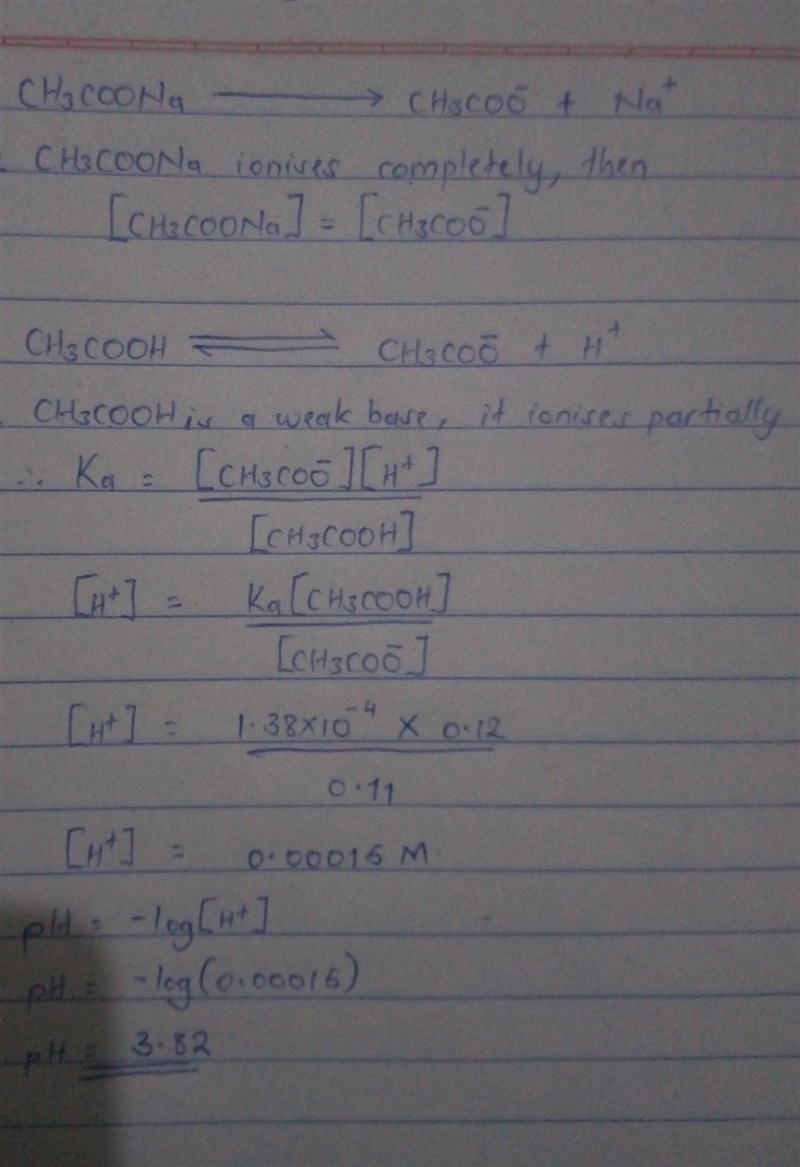 CH3COONa ⟶ CH3COO⁻ + Na⁺
CH3COONa ionises completely, then
[CH3COONa] = [CH3COO⁻]
CH3COOH ⇌ CH3COO⁻ + H⁺
CH3COOH is a weak base, it ionises partially
∴ Ka = [CH3COO⁻][H⁺]
[CH3COOH]
[H⁺] = Ka[CH3COOH]
[CH3COO⁻]
[H⁺] = 1.38×10⁻⁴ × 0.12
0.11
[H⁺] = 0.00015 M
pH = -log[H⁺]
pH = -log(0.00015)
pH = 3.82